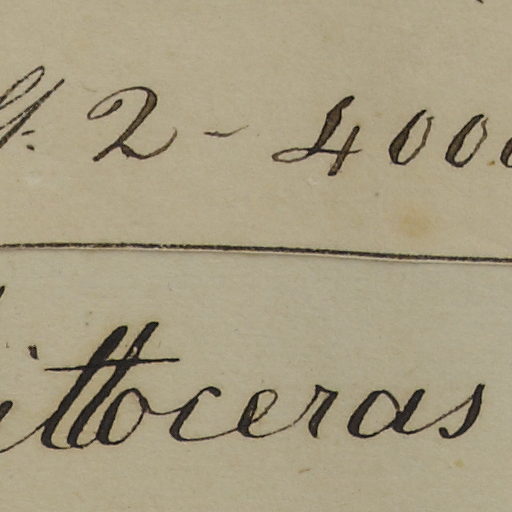 2 - 4000
ittoceras